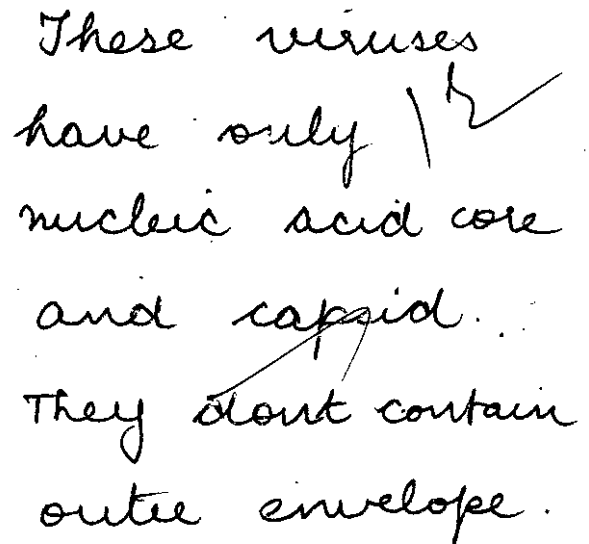 These viruses
have only
nucleic acid core
and capsid.
They dont contain
outer envelope.